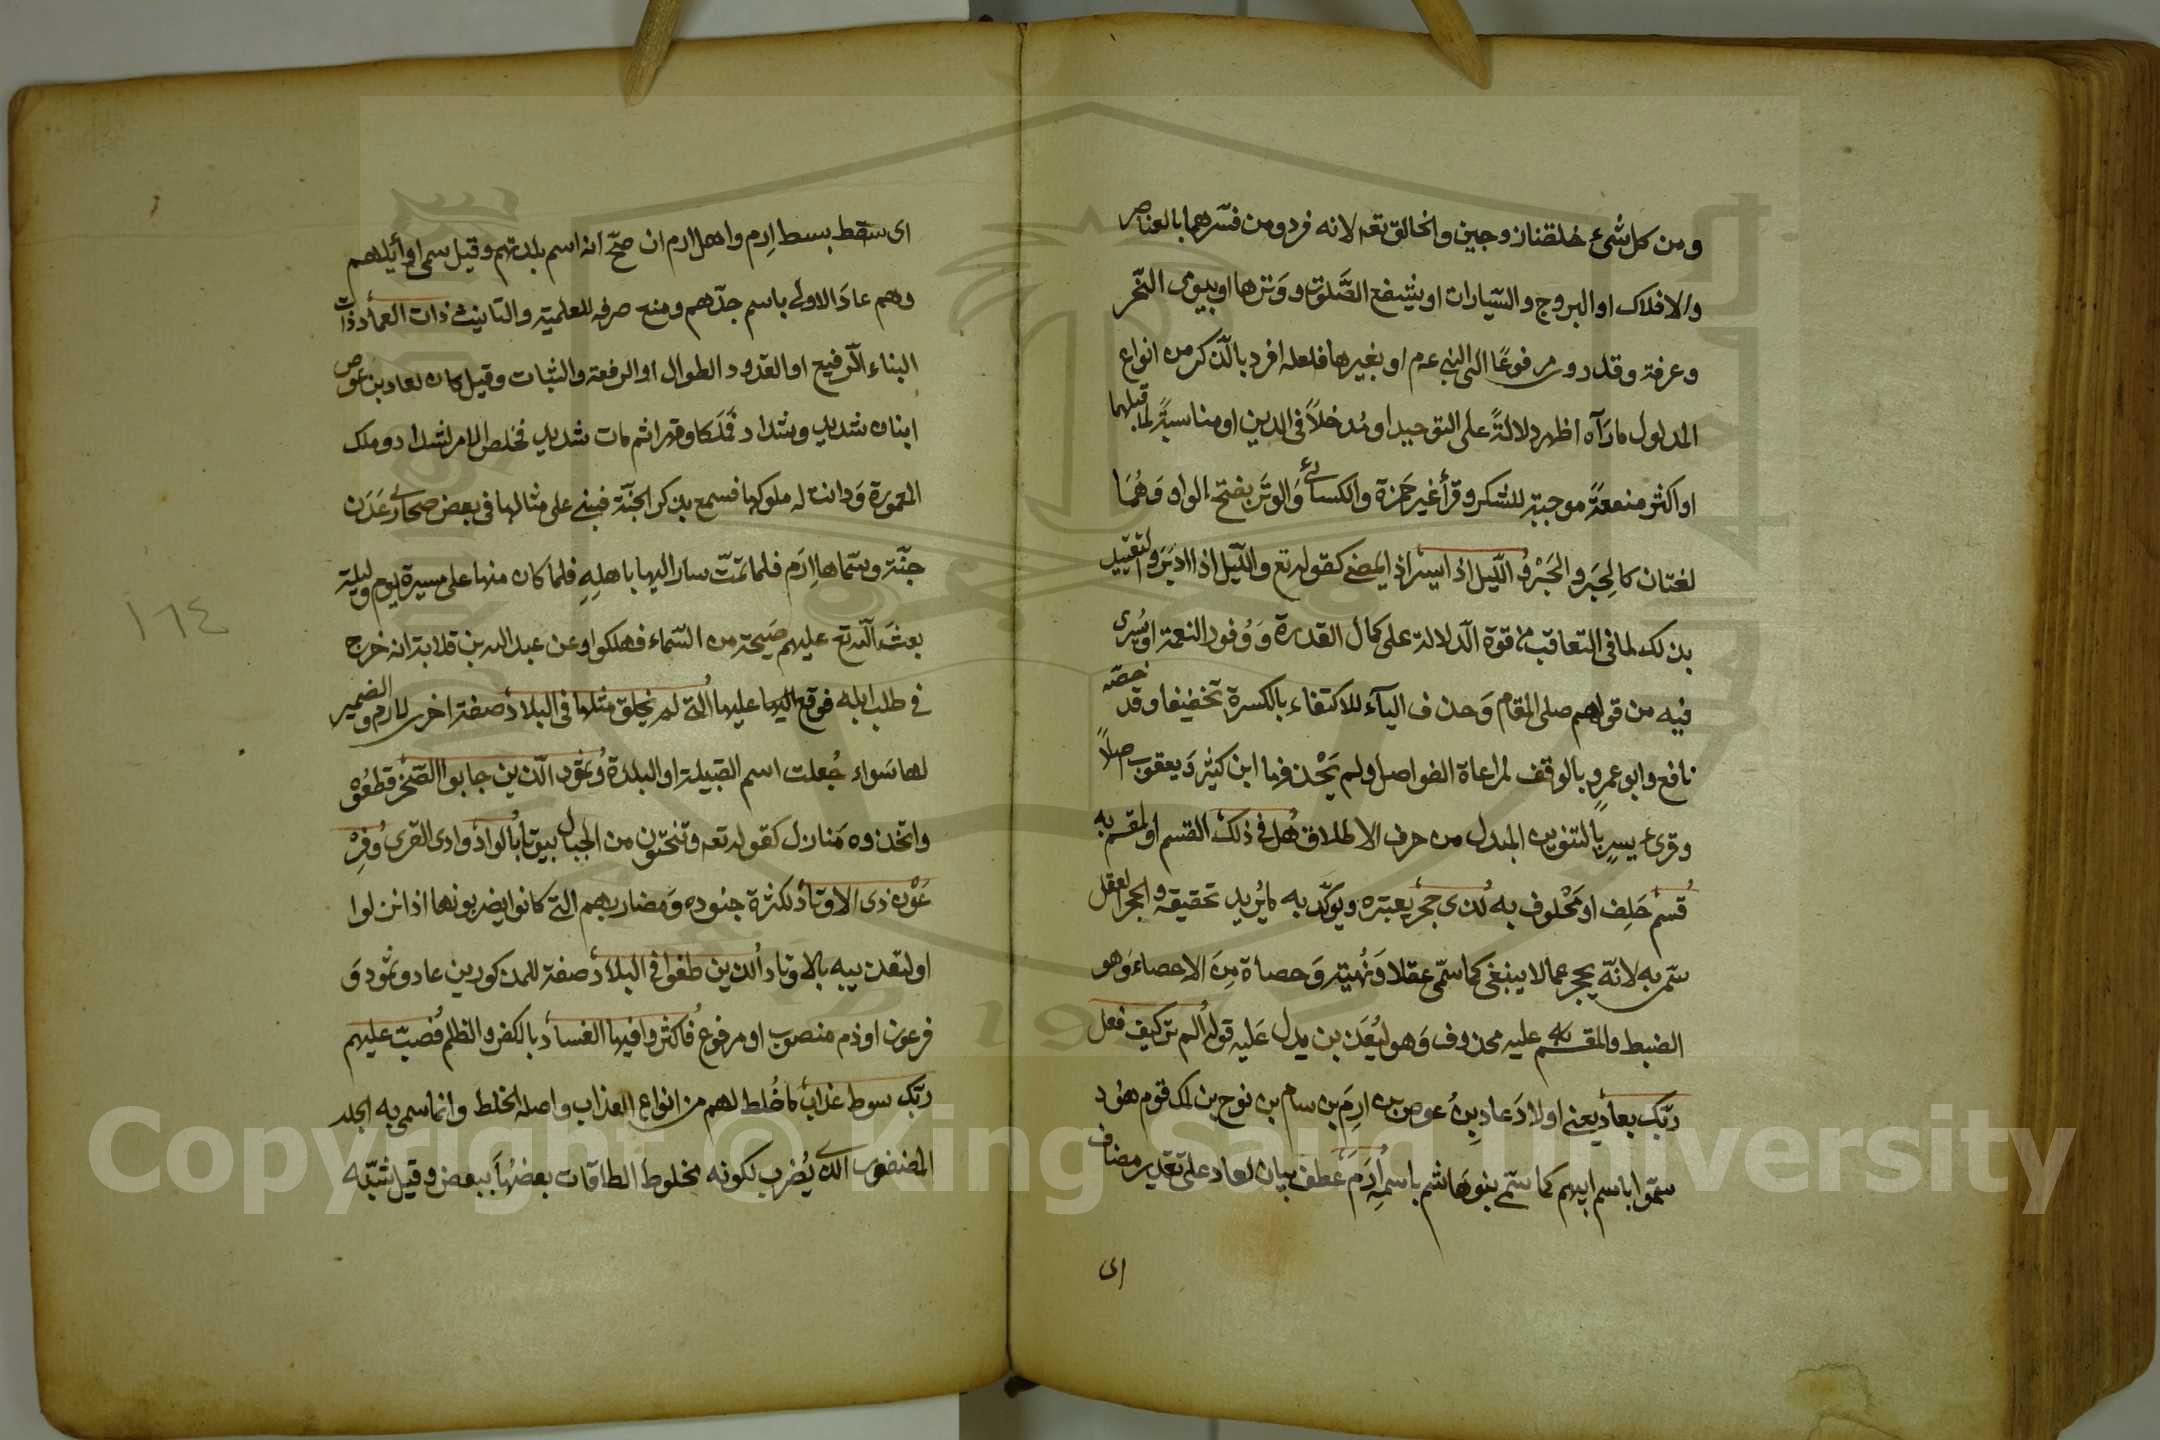 ومن كل شئ خلقنا زوجين والخالق تعه لانه فرد ومن فسرهما بالعناصر
والافلاك او البروج والسيارات او بشفع الصلوت ووترها او بيومى النحر
وعرفة وقد روى مرفوعًا الى النبى عم او بغيرها فلعله افرد بالذكر من انواع
المدلول ما رآه اظهر دلالةً على التوحيد او مدخلاً فى الدين او مناسبةً لما قبلهما
او اكثر منفعةً موجبة للشكر وقرأ غير حمزة والكسائى والوتر بفتح الواو وهما
لغتان كالحبر والحبر والليل اذا يسر اذا يمضى كقوله تع والليل اذا ادبر والتقييد
بذلك لما فى التعاقب من قوة الدلالة على كمال القدرة ووفور النعمة او يسرى
فيه من قولهم صلى المقام وحذف الياء للاكتفاء بالكسرة تخفيفا وقد خصه
نافع وابو عمرو بالوقف لمراعاة الفواصل ولم يحذفها ابن كثير ويعقوب اصلاً
وقرئ يسرٍ بالتنوين المبدل من حرف الاطلاق هل فى ذلك القسم او المقسم به
قسم حلف او محلوف به لذى حجر يعتبره ويؤكد به ما يريد تحقيقه والحجر العقل
سمى به لانه يحجر عما لا ينبغى كما سمى عقلا ونهية وحصاة من الاحصاء وهو
الضبط والمقسم عليه محذوف وهو ليعذبن يدل عليه قوله الم تر كيف فعل
ربك بعاد يعنى اولاد عاد بن عوص بن ارم بن سام بن نوح بن لمك قوم هود
سموا باسم ابيهم كما سمى بنو هاشم باسمه ارم عطف بيان لعاد على تقدير مضاف
اى
اى سقط بسط ارم واهل ارم ان صح انه اسم بلدتهم وقيل سمى اوائلهم
وهم عاد الاولى باسم جدهم ومنع صرفه للعلمية والتانيث ذات العماد ذات
البناء الرفيع او القدود الطوال او الرفعة والثبات وقيل كان لعاد بن عوص
ابنان شديد وشداد فملكا وقهرا ثم مات شديد فخلص الامر لشداد وملك
المعمورة ودانت له ملوكها فسمع بذكر الجنة فبنى على مثالها فى بعض صحارى عدن
جنة وسماها ارم فلما تمت سار اليها باهله فلما كان منها على مسيرة يوم وليلة
بعث الله تع عليهم صيحة من السماء فهلكوا وعن عبد الله بن قلابة انه خرج
فى طلب ابله فوقع عليها التى لم يخلق مثلها فى البلاد صفة اخرى لارم والضمير
لها سواء جعلت اسم القبيلة او البلدة وثمود الذين جابوا الصخر قطعوه
واتخذوه منازل كقوله تعه وتنحتون من الجبال بيوتا بالواد وادى القرى وفر
عون ذى الاوتاد لكثرة جنوده ومضاربهم التى كانوا يضربونها اذا نزلوا
او لتعذيبه بالاوتاد الذين طغوا فى البلاد صفة للمذكورين عاد وثمود و
فرعون او ذم منصوب او مرفوع فاكثروا فيها الفساد بالكفر والظلم فصب عليهم
ربك سوط عذاب ما خلط لهم من انواع العذاب واصله الخلط وانما سمى به الجلد
المضفور الذى يضرب لكونه مخلوط الطاقات بعضها ببعض وقيل شبه
١٦٤
Copyright © King Saud University